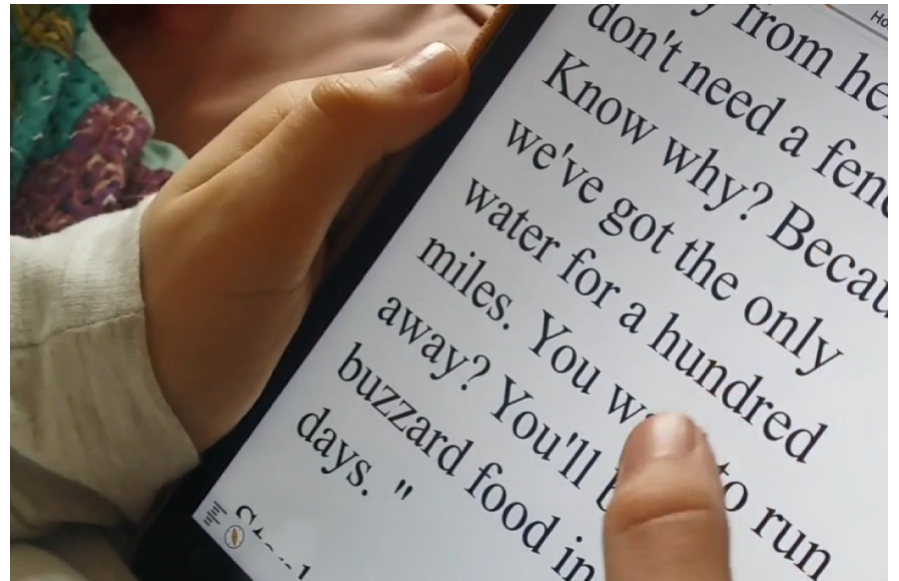 from he
don't need a fen
Know why? Becau
we've got the only
water for a hundred
miles. You to run
away? You'll
buzzard food in
days. "